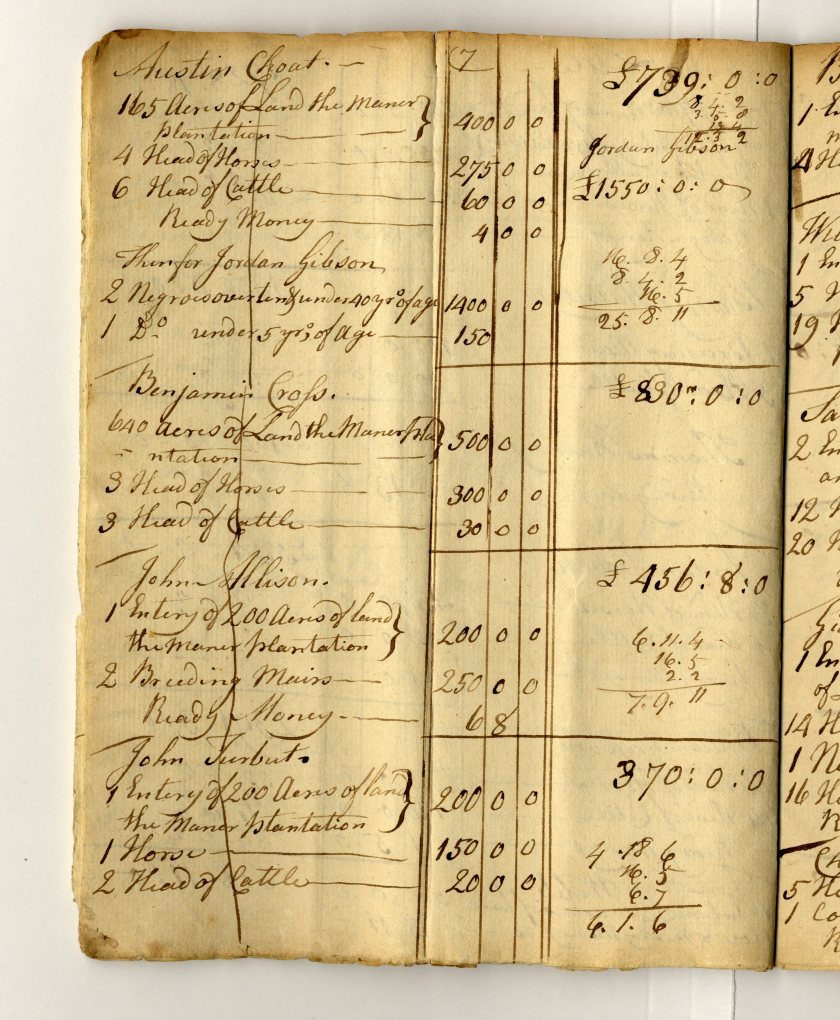 Austin Choat. — (7 £739:0:0
165 Acres of Land the Maner
plantation — 400 0 0
8. 4. 2
12.3. 2
4 Head of Horses — 275 0 0 Jordan Gibson
6 Head of Cattle — 60 0 0 £1550:0:0
Ready Money — 4 0 0
Then for Jordan Gibson 16. 8. 4
8. 4. 2
2 Negroes over ten & under 40 yrs of age 1400 0 0 16. 5
1 Do under 5 yrs of Age — 150 25. 8. 11
Benjamin Cross. £830:0:0
640 acres of Land the Maner pla
ntation — 500 0 0
3 Head of Horses — 300 0 0
3 Head of Cattle — 30 0 0
John Allison. £456:8:0
1 Entery of 200 Acres of land
the Maner plantation 200 0 0 6. 11. 4
16. 5
2 Breeding Mairs — 250 0 0 2. 2
Ready Money. — 6 8 7. 9. 11
John Turbut. 370:0:0
1 Entery of 200 Acres of land
the Maner plantation 200 0 0
1 Horse — 150 0 0 4. 18 6
16. 5
2 Head of Cattle — 20 0 0 6. 7
6. 1. 6